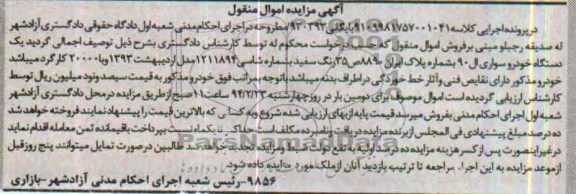 آگهی مزایده اموال منقول
در پرونده اجرایی کلاسه ۹۱۰۹۹۸۱۷۵۷۰۰۱۰۴۱ بایگانی ۹۲۰۳۹۳ مطروحه در اجرای احکام مدنی شعبه اول دادگاه حقوقی دادگستری آزادشهر
له صدیقه رجبلو مبنی بر فروش اموال منقول که خواست محکوم له توسط کارشناس دادگستری بشرح ذیل توصیف اجمالی گردید یک
دستگاه خودرو سواری ال ۹۰ بشماره پلاک ایران ۵۹-۸۸۹ص۳۵ رنگ سفید بشماره شاسی ۱۲۱۱۸۹۴ مدل اردیبهشت ۱۳۹۳ و با ۲۰۰۰۰ کارکرد میباشد
خودرو مذکور دارای نقایص فنی و آثار خط خوردگی در اطراف بدنه میباشد با توجه بمراتب فوق خودرو مذکور به قیمت سیصد و نود میلیون ریال توسط
کارشناس ارزیابی گردیده است اموال موصوف برای دومین بار در روز چهارشنبه ۹۴/۲/۲۳ ساعت ۱۱ صبح از طریق مزایده در محل دادگستری آزادشهر
شعبه اول اجرای احکام مدنی بفروش میرسد قیمت پایه از بهای ارزیابی شده شروع و به کسانی که بالاترین قیمت را پیشنهاد نمایند فروخته خواهد شد
ده درصد مبلغ پیشنهادی فی المجلس از برنده مزایده دریافت و نامبرده مکلف است حداکثر تا یکماه نسبت بپرداخت باقیمانده ثمن معامله اقدام نماید
در غیر اینصورت پس از کسر هزینه مزایده ده درصد مزایده تجدید خواهد شد طالبین در صورت تمایل میتوانند پنج روز قبل
از موعد مزایده به این اجرا مراجعه تا ترتیب بازدید آنان از ملک مورد مزایده داده شود.
۹۸۵۶-رئیس شعبه اجرای احکام مدنی آزادشهر-بازاری